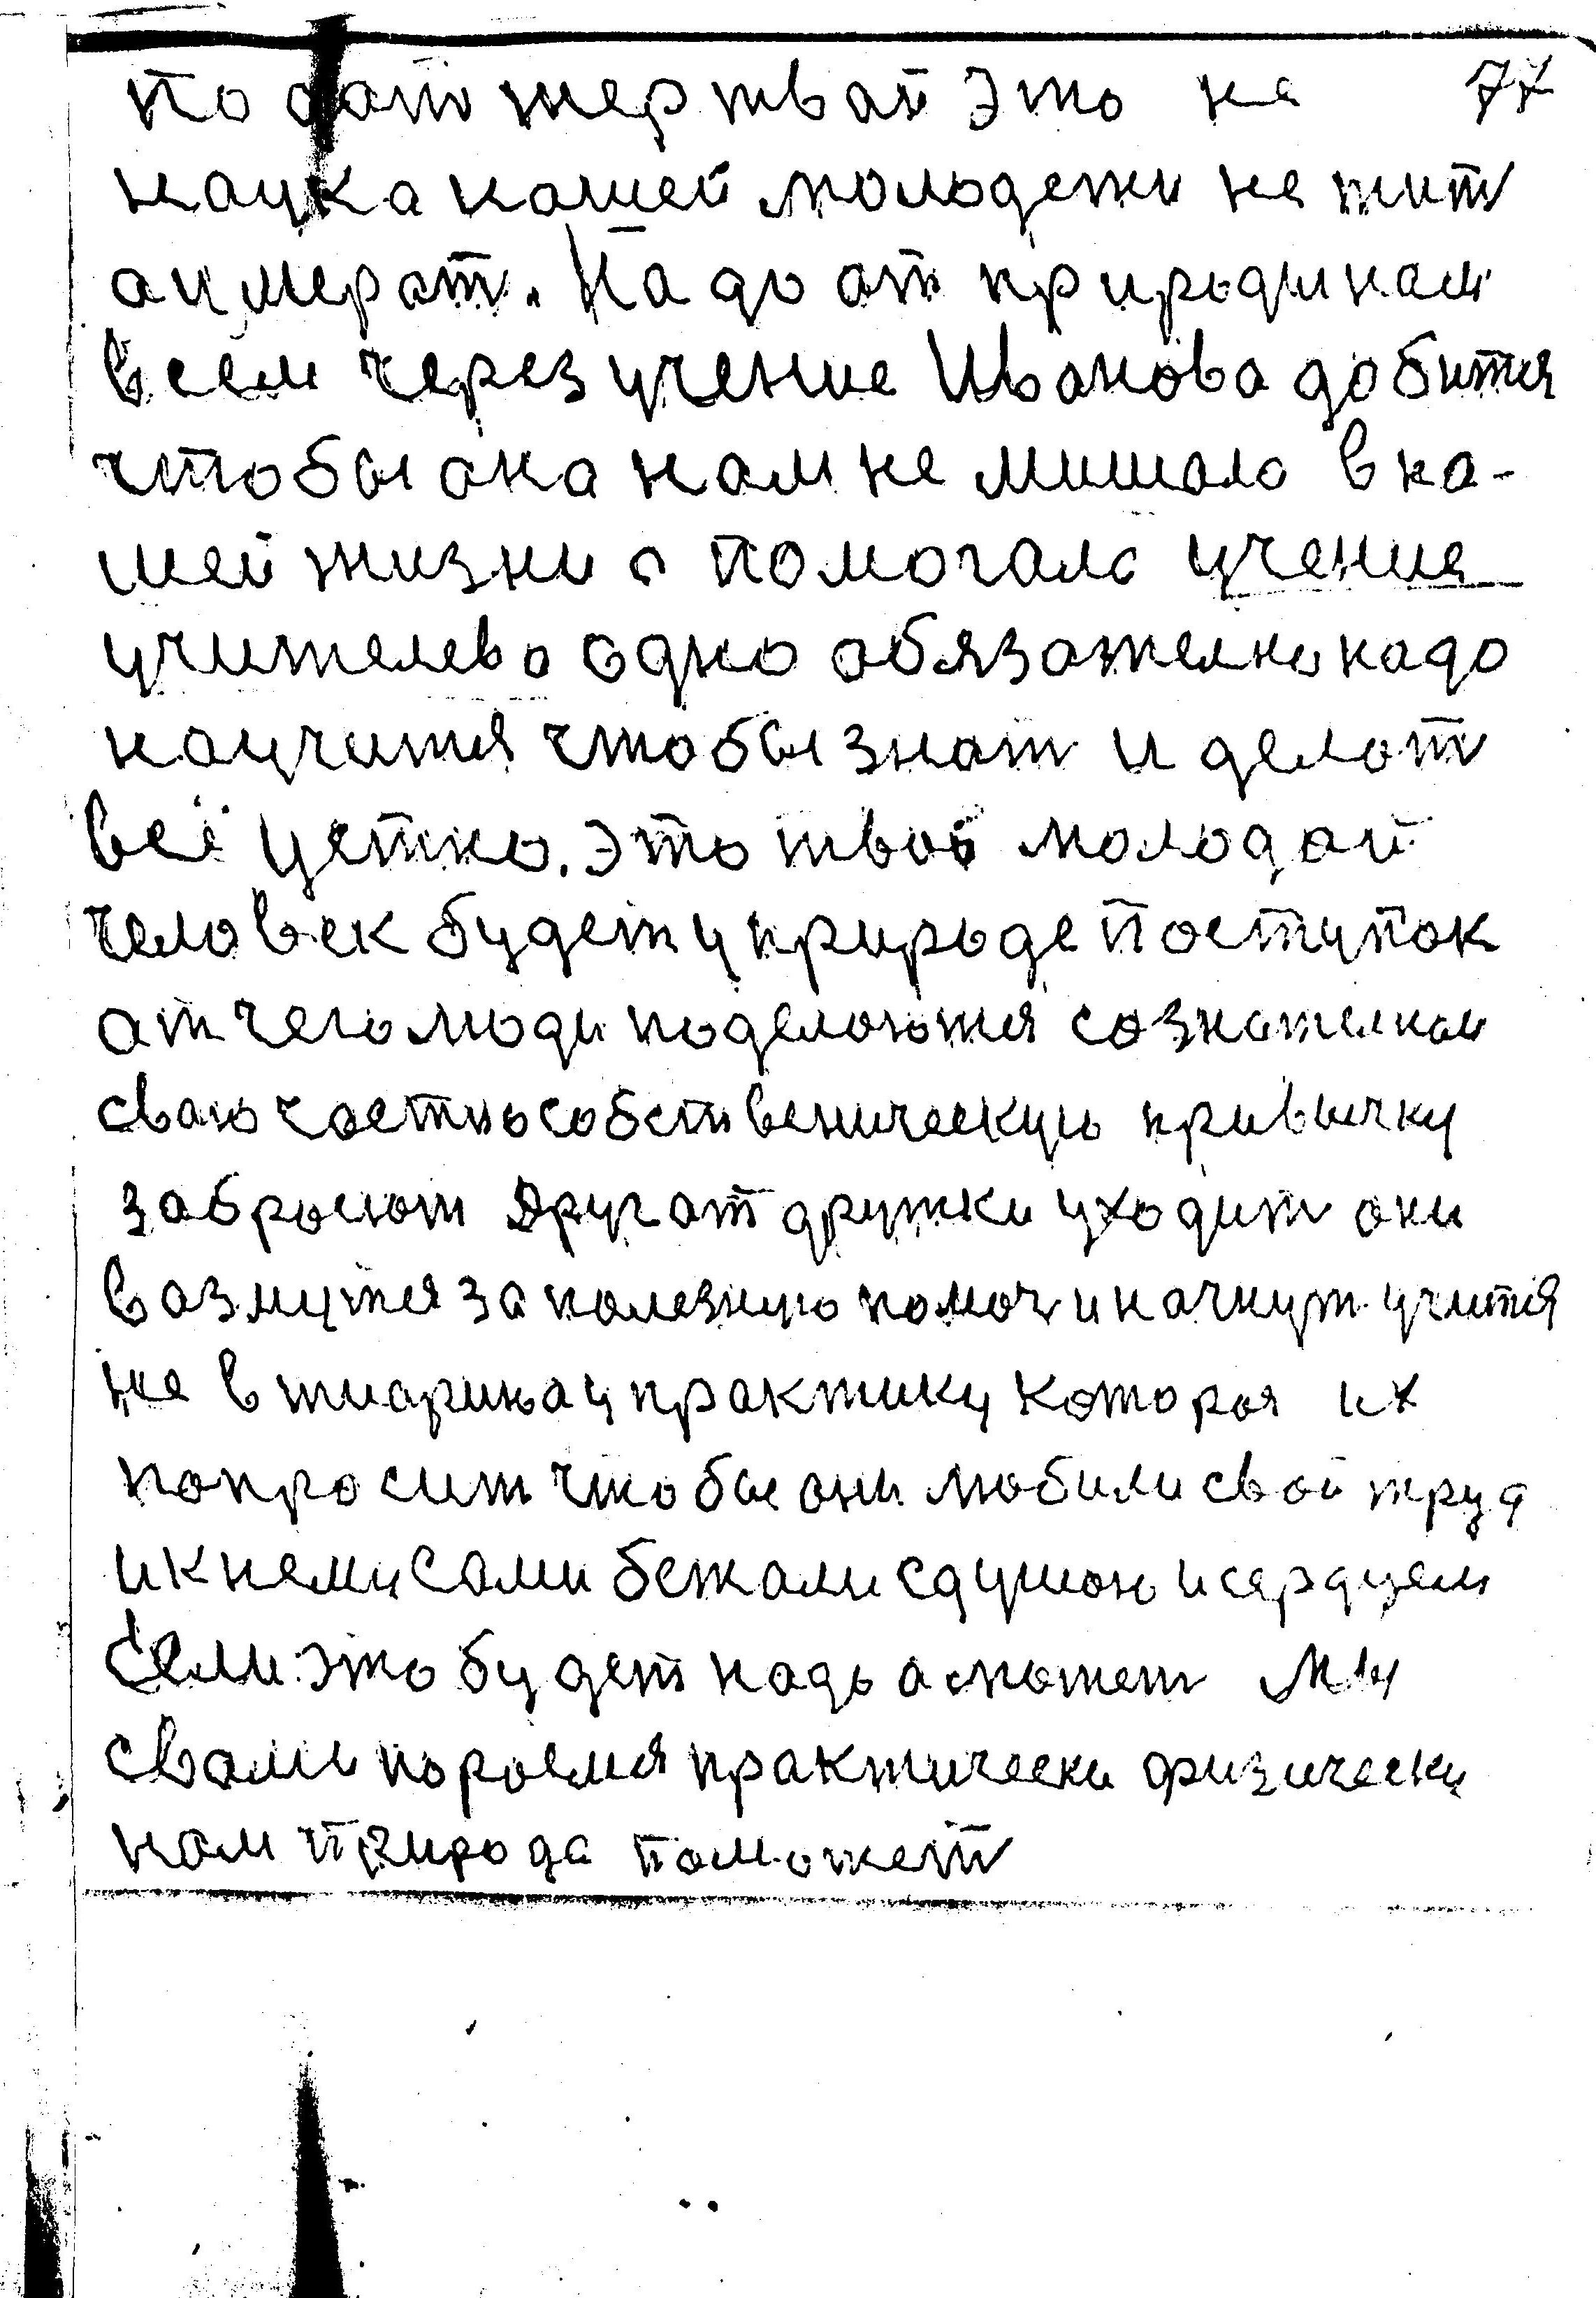 по dат жертвай это не 77
наука нашей молодежи не жит
аумерат. Надо от природы нам
всем через учение Иванова добится
чтобы она нам не мишала в на-
шей жизни а помогала учение
учителево одно обязателно надо
научится чтобы знат и делат
всё цетко. это твой молодай
человек будет у природе поступок
ат чего люди поделаются сознателнаи
сваю частнособственическую привычку
забросют друг от дружки уходит они
возмутся за полезную помоч и начнут учится
не в тиории а у практики которая их
попросит чтобы они любили свой труд
и к нему сами бежали с душою и сердцем
Если это будет надо а может мы
с вами попросимся практически физически
нам природа поможет